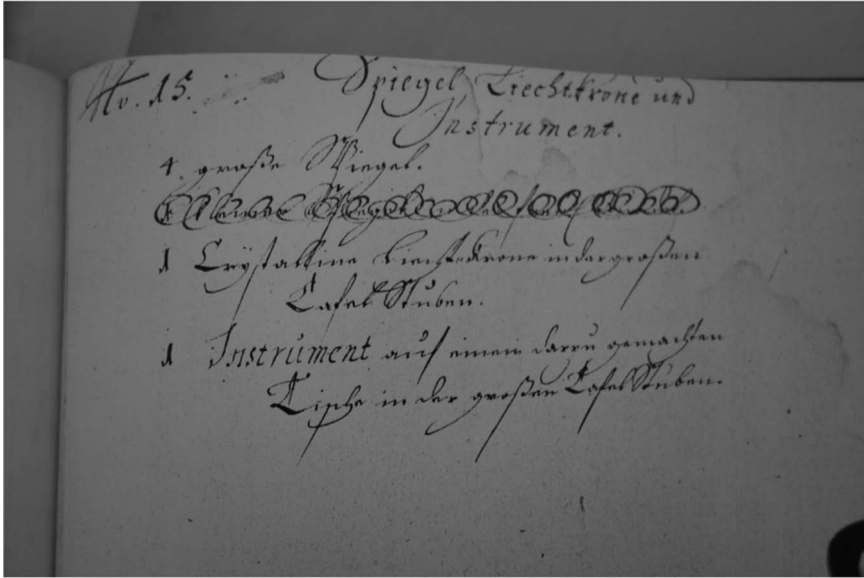 No. 15. Spiegel Liechtkrone und
Instrument.
4. große Spiegel.
1 Crÿstalline Liechtkrone in der großen
Tafel Stuben.
1 Instrument auf einem darzu gemachten
Tische in der großen Tafel Stuben.